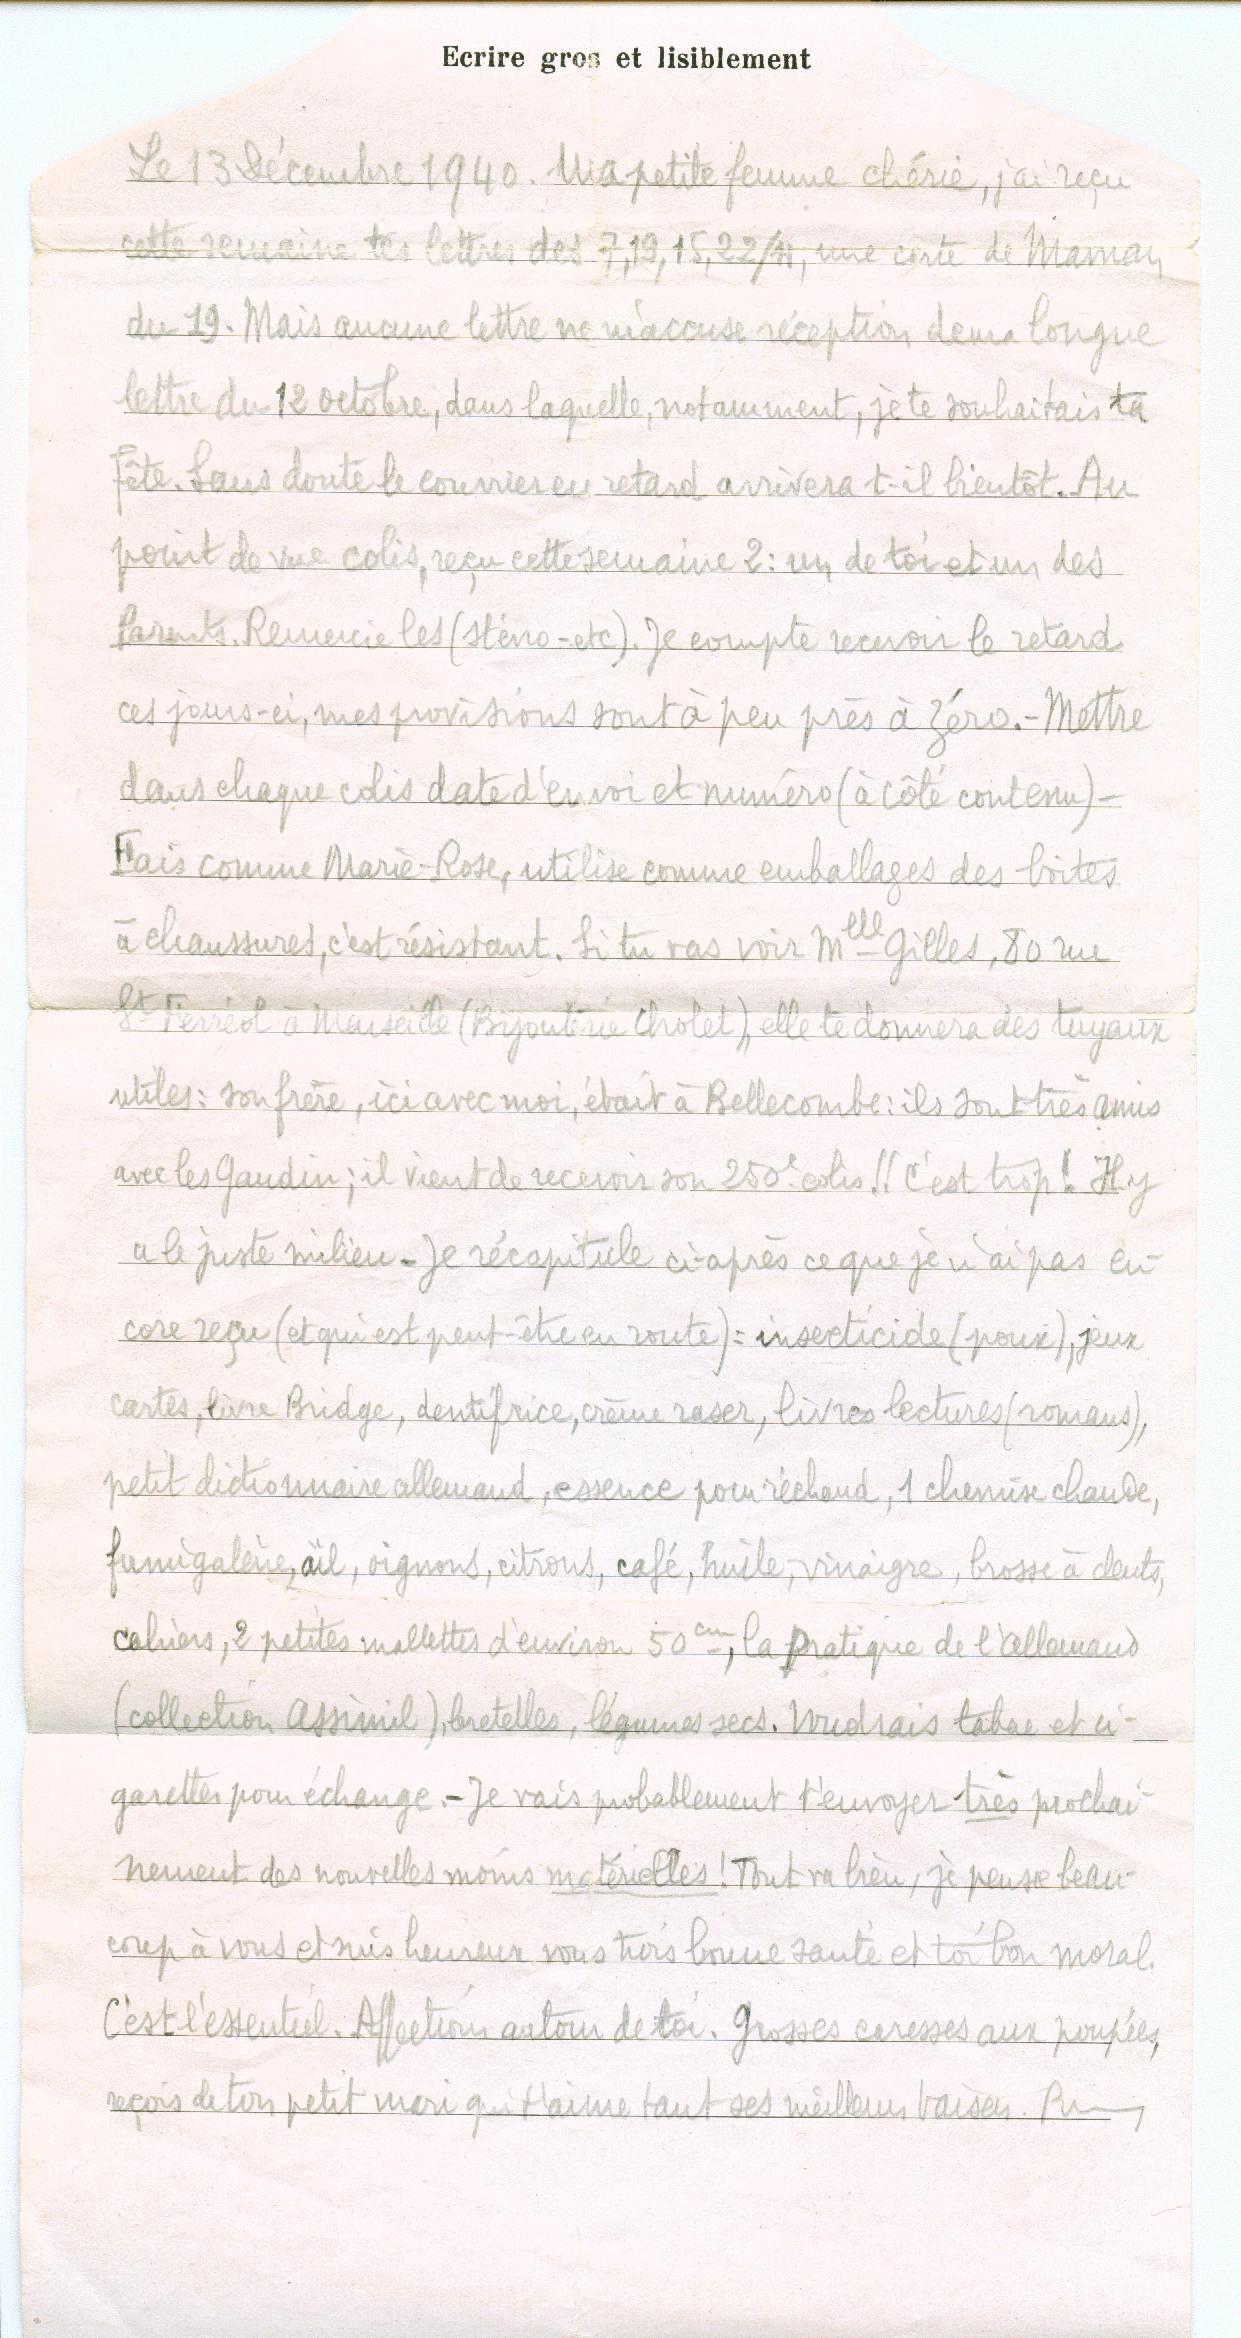 Ecrire gros et lisiblement
Le 13 Décembre 1940. Ma petite femme chérie, j'ai reçu
cette semaine tes lettres des 7, 19, 15, 22/11, une carte de Maman
du 19. Mais aucune lettre ne m'accuse réception de ma longue
lettre du 12 octobre, dans laquelle, notamment, je te souhaitais ta
Fête. Sans doute le courrier en retard arrivera t-il bientôt. Au
point de vue colis, reçu cette semaine 2 : un de toi et un des
Parents. Remercie les (sténo-etc). Je compte recevoir le retard
ces jours-ci, mes provisions sont à peu près à zéro. - Mettre
dans chaque colis date d'envoi et numéro (à côté contenu) -
Fais comme Marie-Rose, utilise comme emballages des boites
à chaussures, c'est résistant. Si tu vas voir Melle Gilles, 80 rue
St Ferréol à Marseille (Bijouterie Cholet), elle te donnera des tuyaux
utiles : son frère, ici avec moi, était à Bellecombe : ils sont très amis
avec les Gaudin ; il vient de recevoir son 250e colis !! C'est trop ! Il y
a le juste milieu - Je récapitule ci-après ce que je n'ai pas en-
core reçu (et qui est peut-être en route) : insecticide (poux), jeux
cartes, livre Bridge, dentifrice, crème raser, livres lectures (romans),
petit dictionnaire allemand, essence pour réchaud, 1 chemise chaude,
fumigalène, ail, oignons, citrons, café, huile, vinaigre, brosse à dents,
cahiers, 2 petites mallettes d'environ 50 cm, la pratique de l'Allemand
(collection Assimil), bretelles, légumes secs. Voudrais tabac et ci-
garettes pour échange. - Je vais probablement t'envoyer très prochai-
nement des nouvelles moins matérielles ! Tout va bien, je pense beau-
coup à vous et suis heureux vous trois bonne santé et toi bon moral.
C'est l'essentiel. Affection autour de toi. Grosses caresses aux poupées,
reçois de ton petit mari qui t'aime tant ses meilleurs baisers.